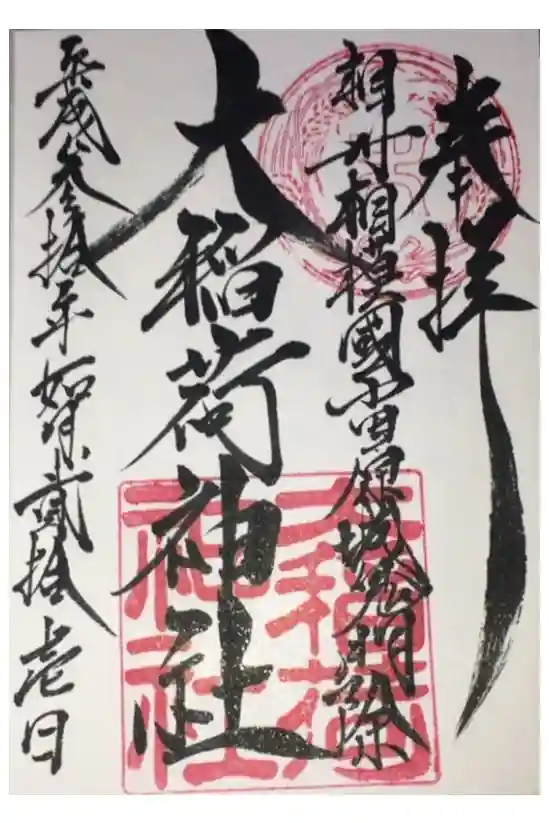 奉拝
相州相模國小田原城鬼門除
大稲荷神社
平成参拾年如月貳拾壱日
大稲荷
神社